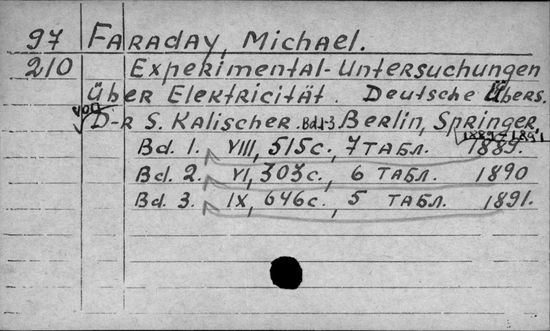 97 Faraday, Michael.
210 Experimental-Untersuchungen
über Elektricität. Deutsche Übers.
von D-r S. Kalischer. Bd.1-3 Berlin, Springer,
1889-1891
Bd. 1. VIII, 515 с., 7 табл. 1889.
Bd. 2. VI, 303 с., 6 табл. 1890
Bd. 3. IX, 646 с., 5 табл. 1891.